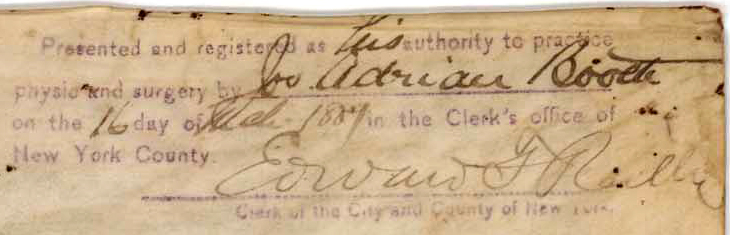 Presented and registered as his authority to practice
physic and surgery by Jno. Adrian Booth
on the 16 day of 188 in the Clerk's office of
New York County.
Edward F Reilly
Clerk of the City and County of New York.